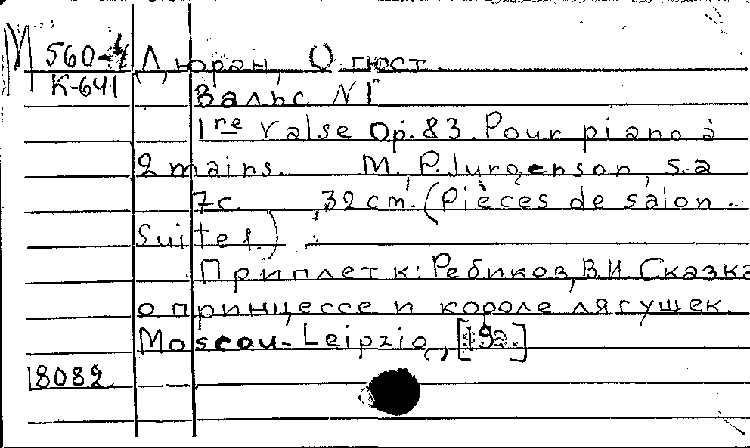 М 560-4 Дюран, Огюст.
К-641
Вальс N1
1re Valse Op. 83. Pour piano à
2 mains. M., P. Jurgenson, s.a
7с. , 32 cm. (Pièces de salon.
Suite 1.)
Приплет к: Ребиков, В.И. Сказка
о принцессе и короле лягушек.
Moscou-Leipzig, [s.a.]
18082